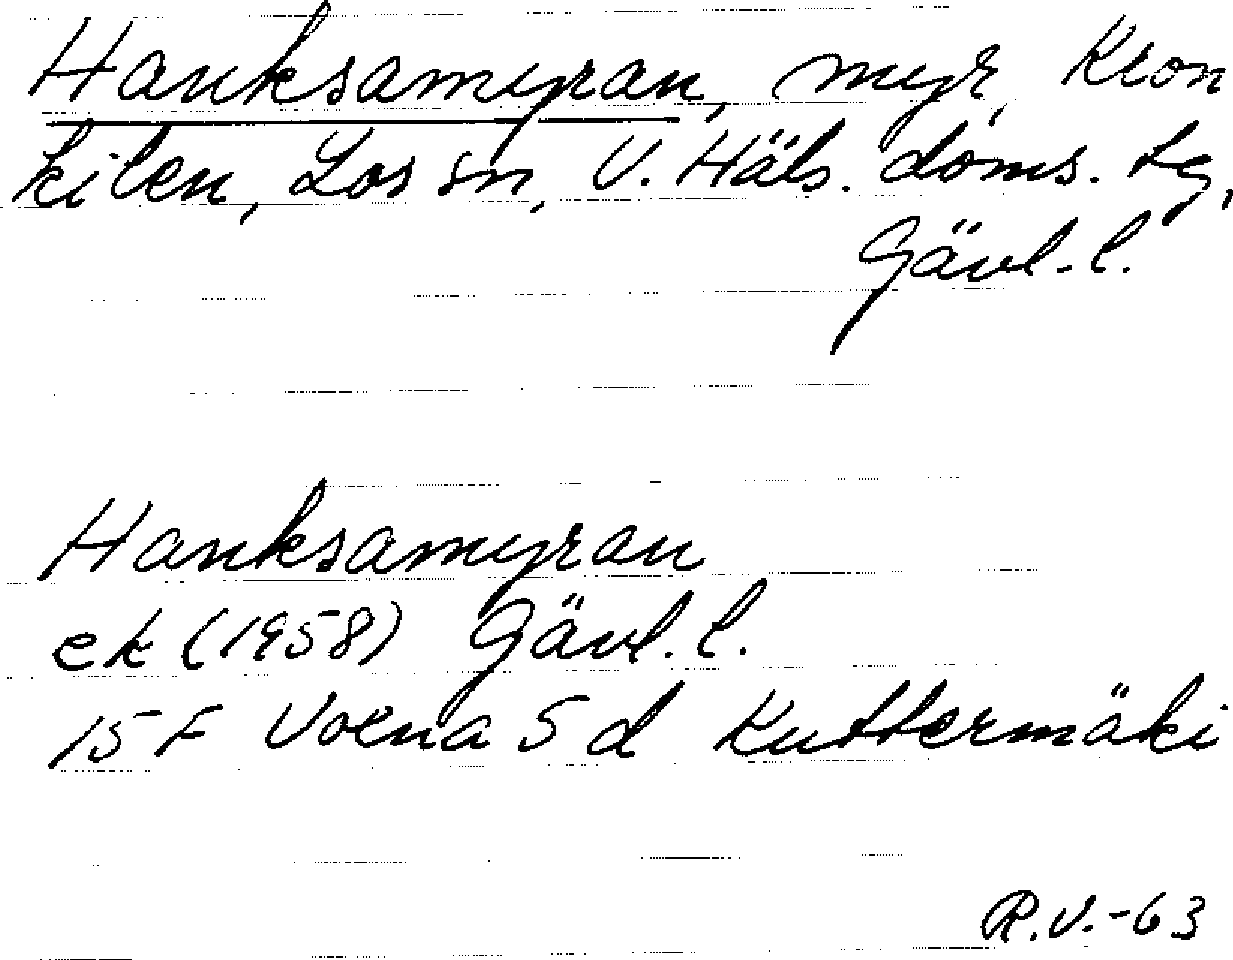 Hanksamyran, myr, Kron
kilen, Los sn, V. Häls. doms. tg,
Gävl. l.
Hanksamyran
ek (1958) Gävl. l.
15 F Voxna 5 d Kuttermäki
R.V.-63